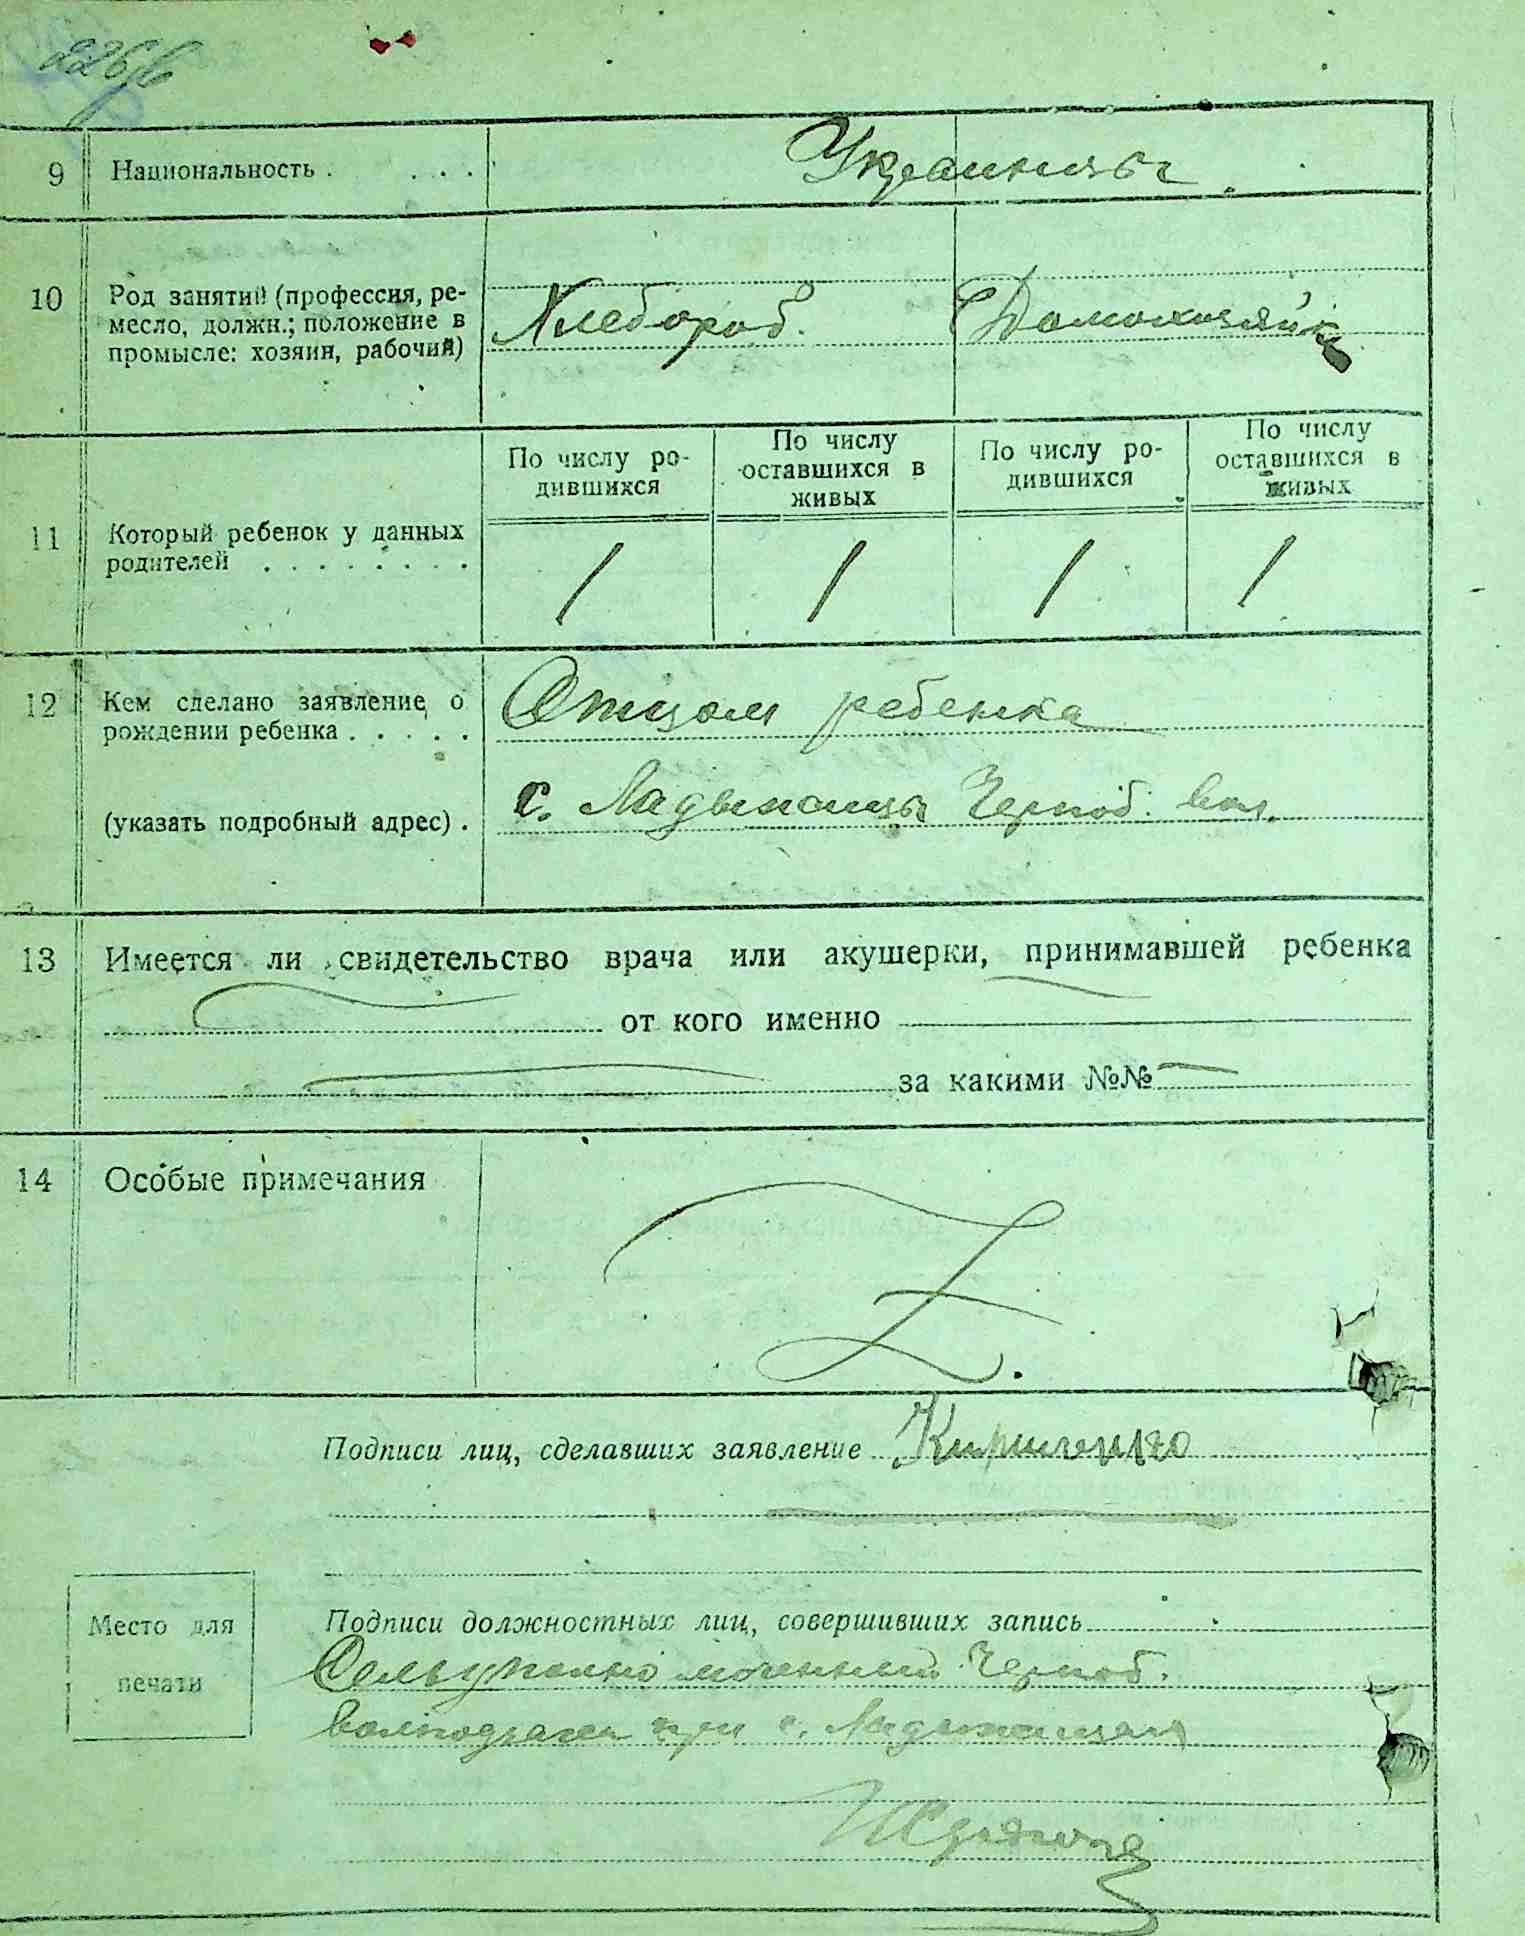 9 Национальность . . . . Украинцы.
10 Род занятий (профессия, ре-
месло, должн.; положение в
промысле: хозяин, рабочий)
Хлебороб. Домохозяйк
По числу ро-
дившихся
По числу
оставшихся в
живых
По числу ро-
дившихся
По числу
оставшихся в
живых
11 Который ребенок у данных
родителей . . . . . . . .
1 1 1 1
12 Кем сделано заявление о
рождении ребенка . . . . .
Отцом ребенка
(указать подробный адрес) .
с. Ладыжицы Черноб. вол.
13 Имеется ли свидетельство врача или акушерки, принимавшей ребенка
от кого именно
за какими №№
14 Особые примечания
Подписи лиц, сделавших заявление Кириленко
Место для
печати
Подписи должностных лиц, совершивших запись
Сельуполномоченный Черноб.
волподзагса при с. Ладыжицах